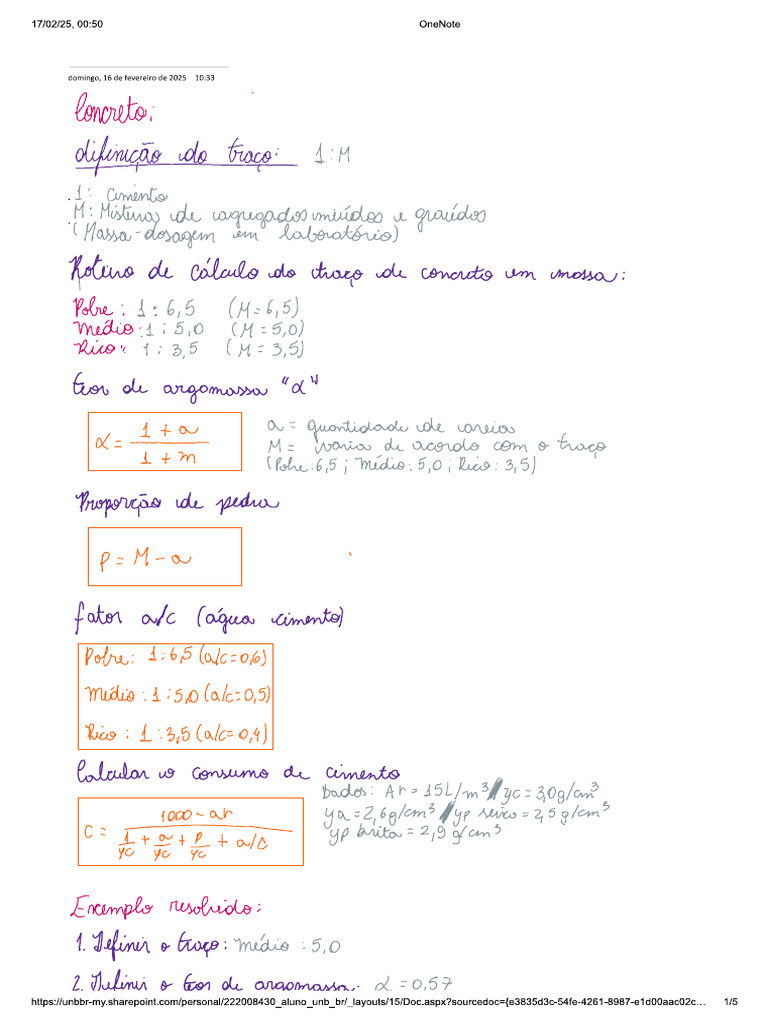 17/02/25, 00:50 OneNote
domingo, 16 de fevereiro de 2025 10:33
Concreto:
difinição do traço: 1:M
1: Cimento
M: Mistura de agregados miúdos e graúdos
(Massa-dosagem em laboratório)
Roteiro de cálculo do traço de concreto em massa:
Pobre: 1:6,5 (M=6,5)
Médio: 1:5,0 (M=5,0)
Rico: 1:3,5 (M=3,5)
teor de argamassa "α"
α = (1+a)/(1+m)
a = quantidade de areia
M = varia de acordo com o traço
(Pobre:6,5; Médio:5,0; Rico:3,5)
Proporção de pedra
P = M-a
fator a/c (água cimento)
Pobre: 1:6,5 (a/c=0,6)
Médio: 1:5,0 (a/c=0,5)
Rico: 1:3,5 (a/c=0,4)
Calcular o consumo de cimento
Dados: Ar = 15L/m³ // γc = 3,0g/cm³
γa = 2,6g/cm³ // γp seixo = 2,5g/cm³
γp brita = 2,9 g/cm³
C = (1000-ar)/(1/γc + a/γc + P/γc + a/c)
Exemplo resolvido:
1. Definir o traço: médio: 5,0
2. Definir o teor de argamassa. α = 0,57
https://unbbr-my.sharepoint.com/personal/222008430_aluno_unb_br/_layouts/15/Doc.aspx?sourcedoc={e3835d3c-54fe-4261-8987-e1d00aac02c… 1/5